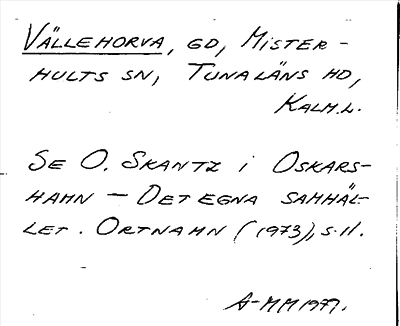 VÄLLEHORVA, GD, MISTER-
HULTS SN, TUNALÄNS HD,
KALM.L.
SE O. SKANTZ I OSKARS-
HAMN – DET EGNA SAMHÄL-
LET. ORTNAMN (1973), S.11.
A-MM 1977.